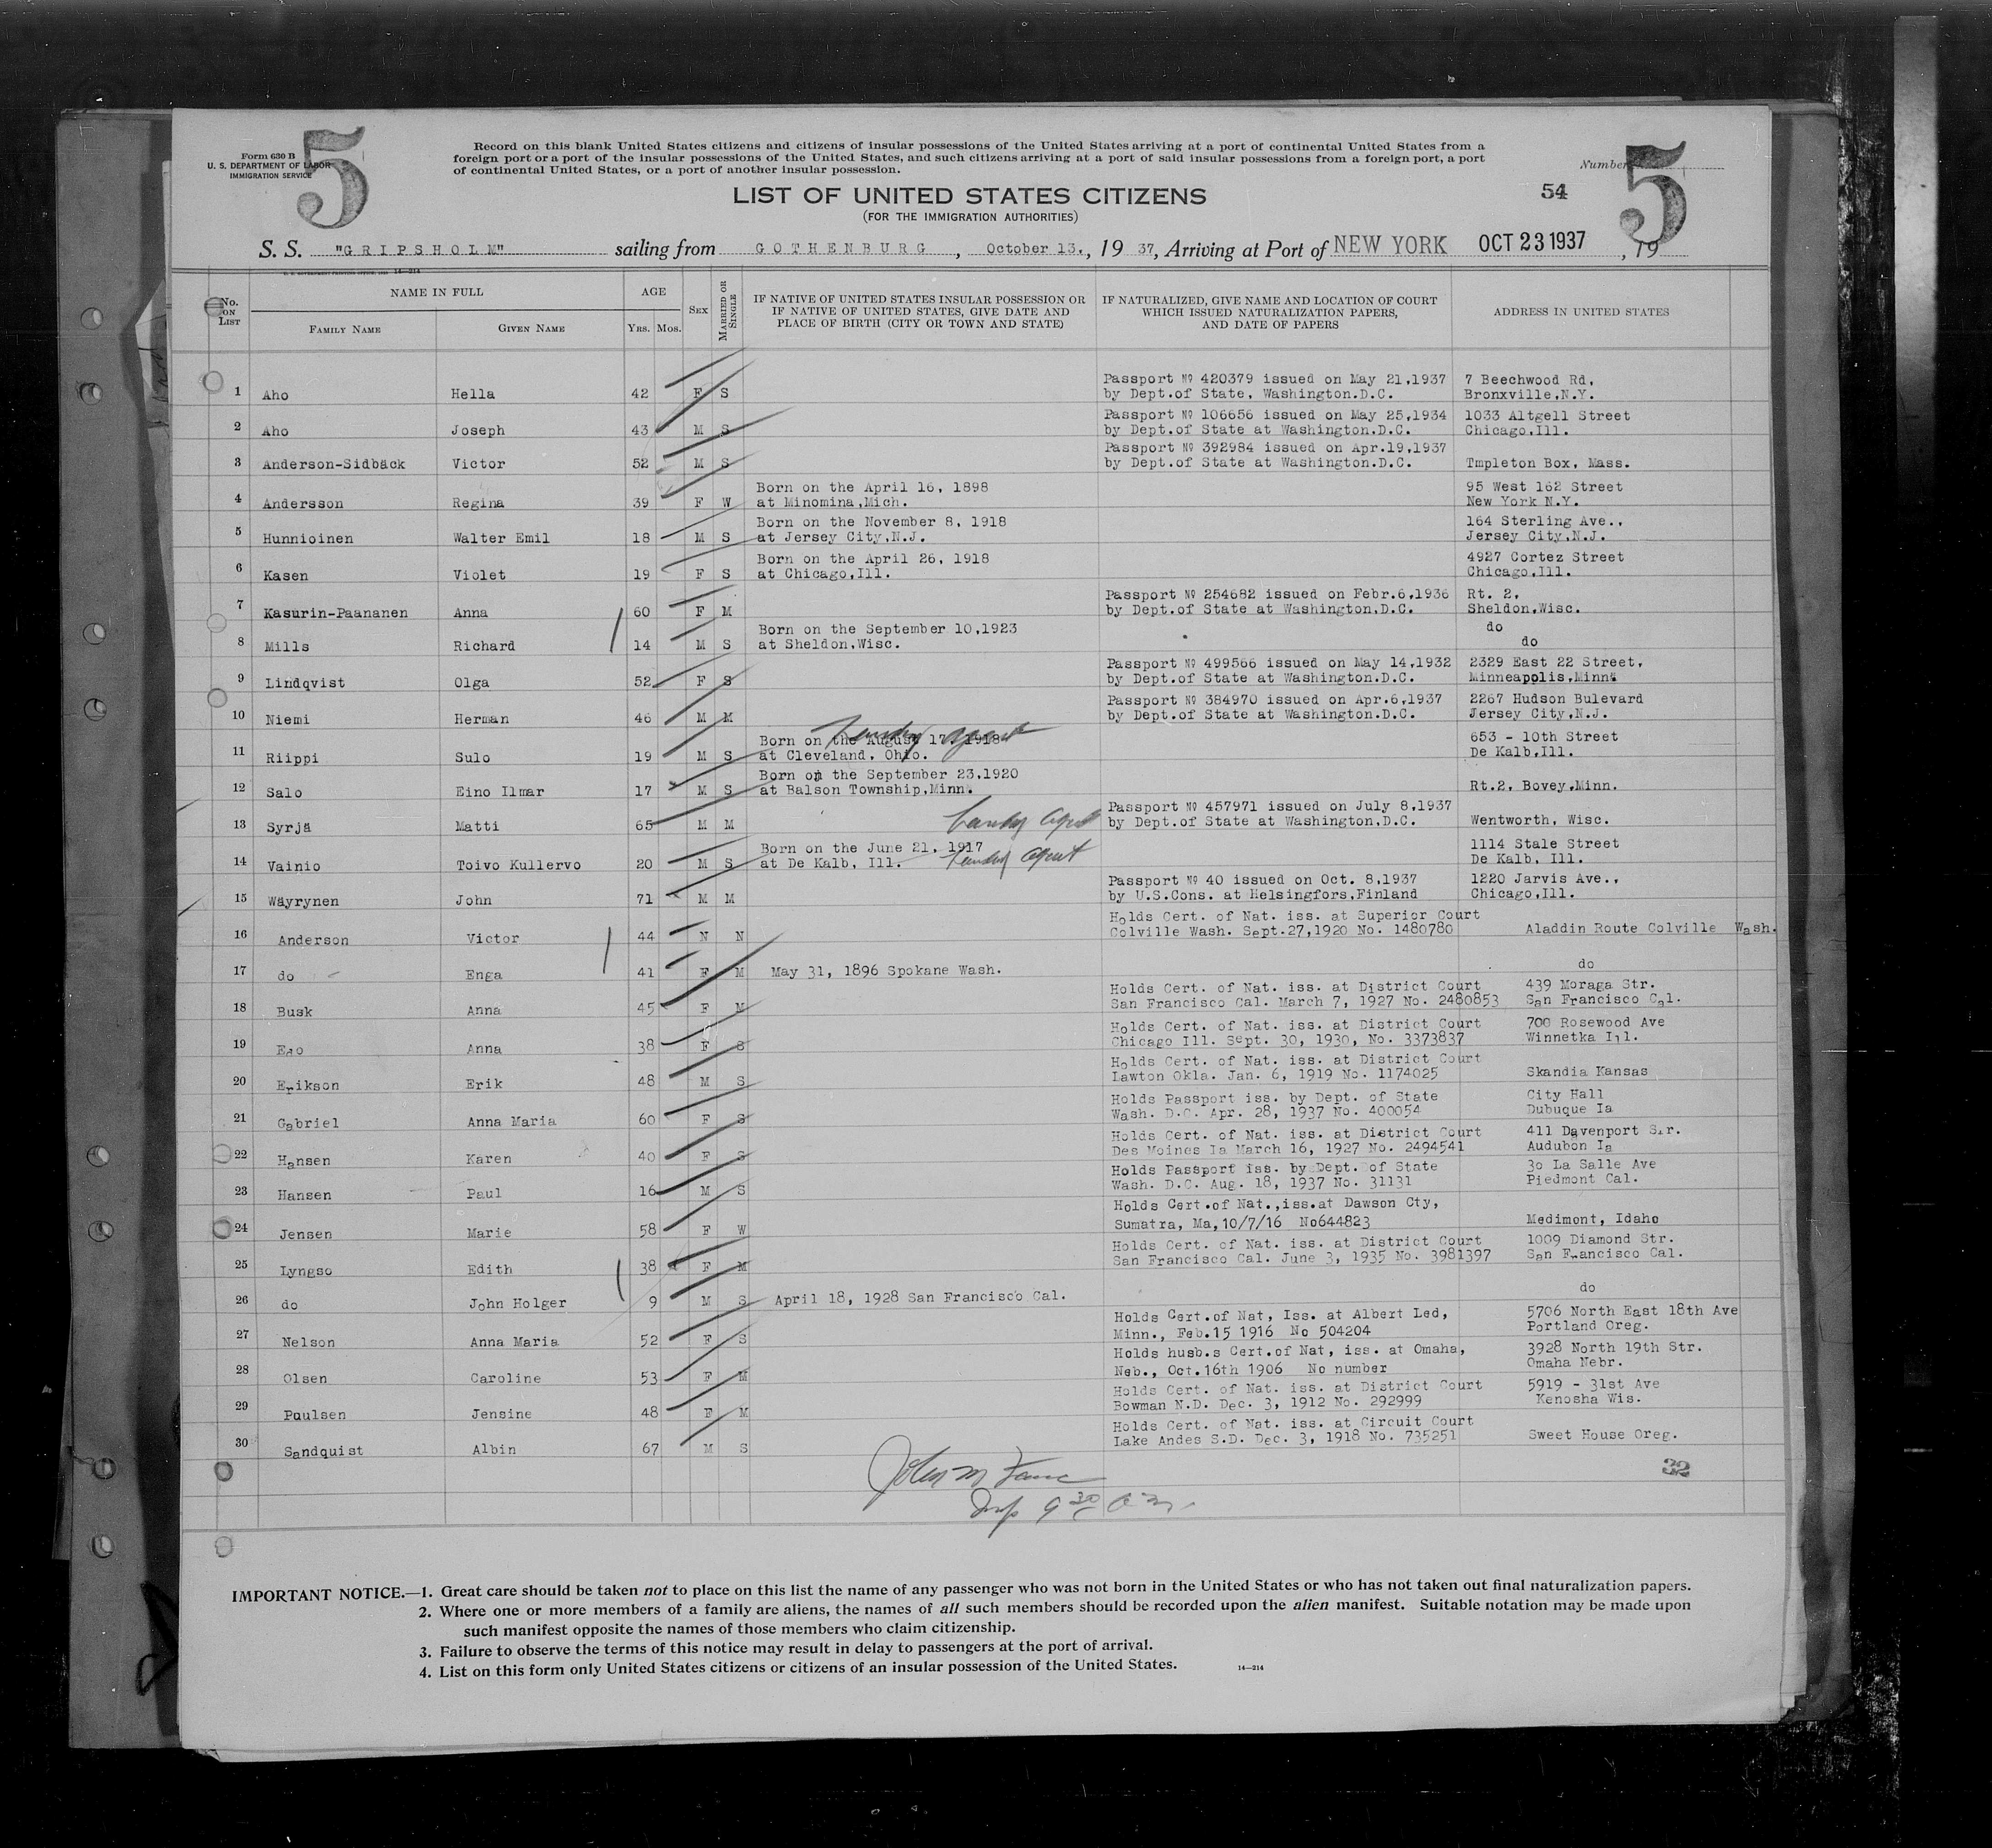 5
5
Form 630 B
U. S. DEPARTMENT OF LABOR
IMMIGRATION SERVICE
Record on this blank United States citizens and citizens of insular possessions of the United States arriving at a port of continental United States from a
foreign port or a port of the insular possessions of the United States, and such citizens arriving at a port of said insular possessions from a foreign port, a port
of continental United States, or a port of another insular possession.
Number
54
LIST OF UNITED STATES CITIZENS
(FOR THE IMMIGRATION AUTHORITIES)
S. S. "GRIPSHOLM" sailing from GOTHENBURG, October 13., 19 37, Arriving at Port of NEW YORK OCT 23 1937, 19
14—214
No. ON LIST
NAME IN FULL
FAMILY NAME
GIVEN NAME
AGE
YRS. MOS.
SEX
MARRIED OR SINGLE
IF NATIVE OF UNITED STATES INSULAR POSSESSION OR
IF NATIVE OF UNITED STATES, GIVE DATE AND
PLACE OF BIRTH (CITY OR TOWN AND STATE)
IF NATURALIZED, GIVE NAME AND LOCATION OF COURT
WHICH ISSUED NATURALIZATION PAPERS,
AND DATE OF PAPERS
ADDRESS IN UNITED STATES
Passport № 420379 issued on May 21,1937 7 Beechwood Rd,
1 Aho Hella 42 F S by Dept.of State, Washington.D.C. Bronxville,N.Y.
Passport № 106656 issued on May 25,1934 1033 Altgell Street
2 Aho Joseph 43 M S by Dept.of State at Washington.D.C. Chicago,Ill.
Passport № 392984 issued on Apr.19,1937
3 Anderson-Sidbäck Victor 52 M S by Dept.of State at Washington.D.C. Tmpleton Box, Mass.
Born on the April 16, 1898 95 West 162 Street
4 Andersson Regina 39 F W at Minomina,Mich. New York N.Y.
Born on the November 8, 1918 164 Sterling Ave.,
5 Hunnioinen Walter Emil 18 M S at Jersey City,N.J. Jersey City,N.J.
Born on the April 26, 1918 4927 Cortez Street
6 Kasen Violet 19 F S at Chicago,Ill. Chicago,Ill.
Passport № 254682 issued on Febr.6,1936 Rt. 2,
7 Kasurin-Paananen Anna 60 F M by Dept.of State at Washington.D.C. Sheldon,Wisc.
Born on the September 10,1923 do
8 Mills Richard 14 M S at Sheldon,Wisc. do
Passport № 499566 issued on May 14,1932 2329 East 22 Street,
9 Lindqvist Olga 52 F S by Dept.of State at Washington.D.C. Minneapolis,Minn.
Passport № 384970 issued on Apr.6,1937 2267 Hudson Bulevard
10 Niemi Herman 46 M M by Dept.of State at Washington.D.C. Jersey City,N.J.
Born on the August 17, 1918 653 - 10th Street
11 Riippi Sulo 19 M S at Cleveland, Ohio. De Kalb,Ill.
Born on the September 23,1920
12 Salo Eino Ilmar 17 M S at Balson Township,Minn. Rt.2, Bovey,Minn.
Passport № 457971 issued on July 8,1937
13 Syrjä Matti 65 M M by Dept.of State at Washington.D.C. Wentworth, Wisc.
Born on the June 21, 1917 1114 Stale Street
14 Vainio Toivo Kullervo 20 M S at De Kalb, Ill. De Kalb, Ill.
Passport № 40 issued on Oct. 8,1937 1220 Jarvis Ave.,
15 Wäyrynen John 71 M M by U.S.Cons. at Helsingfors,Finland Chicago,Ill.
Holds Cert. of Nat. iss. at Superior Court
16 Anderson Victor 44 N N Colville Wash. Sept.27,1920 No. 1480780 Aladdin Route Colville Wash.
17 do Enga 41 F M May 31, 1896 Spokane Wash. do
Holds Cert. of Nat. iss. at District Court 439 Moraga Str.
18 Busk Anna 45 F M San Francisco Cal. March 7, 1927 No. 2480853 San Francisco Cal.
Holds Cert. of Nat. iss. at District Court 700 Rosewood Ave
19 Anna 38 F S Chicago Ill. Sept. 30, 1930, No. 3373837 Winnetka Ill.
Holds Cert. of Nat. iss. at District Court
20 Erikson Erik 48 M S Lawton Okla. Jan. 6, 1919 No. 1174025 Skandia Kansas
Holds Passport iss. by Dept. of State City Hall
21 Gabriel Anna Maria 60 F S Wash. D.C. Apr. 28, 1937 No. 400054 Dubuque Ia
Holds Cert. of Nat. iss. at District Court 411 Davenport Str.
22 Hansen Karen 40 F S Des Moines Ia March 16, 1927 No. 2494541 Audubon Ia
Holds Passport iss. by Dept. of State 30 La Salle Ave
23 Hansen Paul 16 M S Wash. D.C. Aug. 18, 1937 No. 31131 Piedmont Cal.
Holds Cert.of Nat.,iss.at Dawson Cty,
24 Jensen Marie 58 F W Sumatra, Ma,10/7/16 No644823 Medimont, Idaho
Holds Cert. of Nat. iss. at District Court 1009 Diamond Str.
25 Lyngso Edith 38 F M San Francisco Cal. June 3, 1935 No. 3981397 San Francisco Cal.
26 do John Holger 9 M S April 18, 1928 San Francisco Cal. do
Holds Cert.of Nat, Iss. at Albert Led, 5706 North East 18th Ave
27 Nelson Anna Maria 52 F S Minn., Feb.15 1916 No 504204 Portland Oreg.
Holds husb.s Cert.of Nat, iss. at Omaha, 3928 North 19th Str.
28 Olsen Caroline 53 F M Neb., Oct.16th 1906 No number Omaha Nebr.
Holds Cert. of Nat. iss. at District Court 5919 - 31st Ave
29 Paulsen Jensine 48 F M Bowman N.D. Dec. 3, 1912 No. 292999 Kenosha Wis.
Holds Cert. of Nat. iss. at Circuit Court
30 Sandquist Albin 67 M S Lake Andes S.D. Dec. 3, 1918 No. 735251 Sweet House Oreg.
32
John M
Insp 9 30 a m.
IMPORTANT NOTICE.—1. Great care should be taken not to place on this list the name of any passenger who was not born in the United States or who has not taken out final naturalization papers.
2. Where one or more members of a family are aliens, the names of all such members should be recorded upon the alien manifest. Suitable notation may be made upon
such manifest opposite the names of those members who claim citizenship.
3. Failure to observe the terms of this notice may result in delay to passengers at the port of arrival.
4. List on this form only United States citizens or citizens of an insular possession of the United States.
14—214